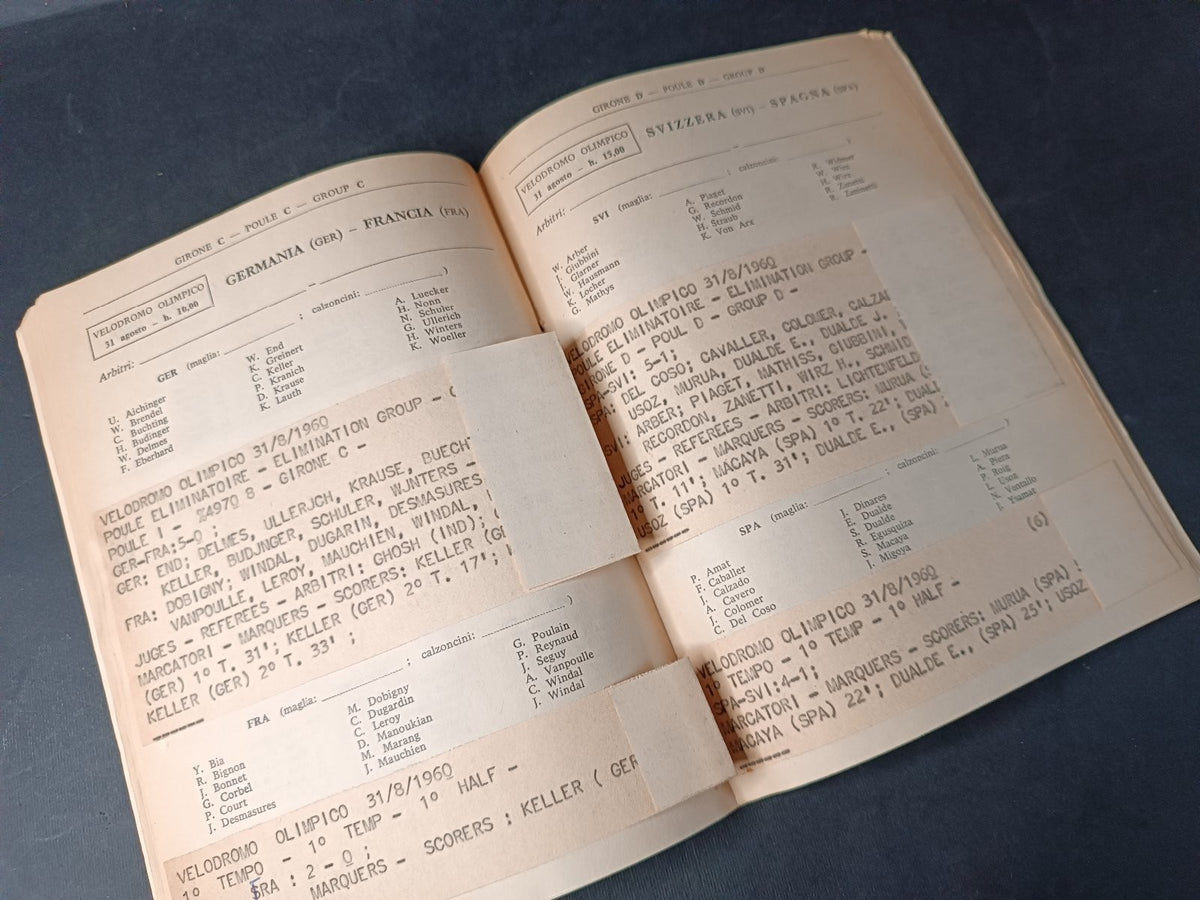 GIRONE C — POULE C — GROUP C
GERMANIA (GER) – FRANCIA (FRA)
VELODROMO OLIMPICO
31 agosto - h. 16,00
Arbitri:
GER (maglia: ; calzoncini: )
U. Aichinger
W. Brendel
C. Buchting
H. Budinger
W. Delmes
F. Eberhard
W. End
K. Greinert
C. Keller
P. Kranich
D. Krause
K. Lauth
A. Luecker
H. Nonn
N. Schuler
G. Ullerich
H. Winters
K. Woeller
VELODROMO OLIMPICO 31/8/1960
POULE ELIMINATOIRE - ELIMINATION GROUP -
POULE I - %4970 8 - GIRONE C -
GER-FRA:5-0 ;
GER: END; DELMES, ULLERJCH, KRAUSE, BUECH
KELLER, BUDJNGER, SCHULER, WJNTERS -
FRA: DOBIGNY; WINDAL, DUGARIN, DESMASURES
VANPOULLE, LEROY, MAUCHIEN, WINDAL,
JUGES - REFEREES - ARBITRI: GHOSH (IND);
MARCATORI - MARQUERS - SCORERS: KELLER (GE
(GER) 1º T. 31'; KELLER (GER) 2º T. 17';
KELLER (GER) 2º T. 33' ;
FRA (maglia: ; calzoncini: )
Y. Bia
R. Bignon
J. Bonnet
G. Corbel
P. Court
J. Desmasures
M. Dobigny
C. Dugardin
C. Leroy
D. Manoukian
M. Marang
J. Mauchien
G. Poulain
P. Reynaud
J. Seguy
A. Vanpoulle
C. Windal
J. Windal
VELODROMO OLIMPICO 31/8/1960
1º TEMPO - 1º TEMP - 1º HALF -
FRA : 2 - 0 ;
MARQUERS - SCORERS : KELLER ( GER
GIRONE D — POULE D — GROUP D
SVIZZERA (SVI) – SPAGNA (SPA)
VELODROMO OLIMPICO
31 agosto - h. 15,00
Arbitri:
SVI (maglia: ; calzoncini: )
W. Arber
J. Giubbini
F. Glarner
W. Hausmann
K. Locher
G. Mathys
A. Piaget
G. Recordon
W. Schmid
H. Straub
K. Von Arx
R. Widmer
W. Wirz
H. Wirz
R. Zanetti
R. Zaninetti
VELODROMO OLIMPICO 31/8/1960
POULE ELIMINATOIRE - ELIMINATION GROUP -
GIRONE D - POUL D - GROUP D -
SPA-SVI: 5-1;
SPA: DEL COSO; CAVALLER, COLOMER, CALZA
USOZ, MURUA, DUALDE E., DUALDE J.
SVI: ARBER; PIAGET, MATHISS, GIUBBINI,
RECORDON, ZANETTI, WIRZ H., SCHMID
JUGES - REFEREES - ARBITRI: LICHTENFELD
MARCATORI - MARQUERS - SCORERS: MURUA (S
1º T. 11'; MACAYA (SPA) 1º T. 22'; DUAL
USOZ (SPA) 1º T. 31'; DUALDE E., (SPA)
SPA (maglia: ; calzoncini: )
P. Amat
F. Caballer
J. Calzado
A. Cavero
J. Colomer
C. Del Coso
J. Dinares
E. Dualde
S. Dualde
R. Egusquiza
S. Macaya
J. Migoya
L. Murua
A. Piera
P. Roig
L. Usoz
N. Ventallo
I. Ysamat
(G)
VELODROMO OLIMPICO 31/8/1960
1º TEMPO - 1º TEMP - 1º HALF -
SPA-SVI:4-1;
MARCATORI - MARQUERS - SCORERS: MURUA (SPA)
MACAYA (SPA) 22'; DUALDE E., (SPA) 25'; USOZ